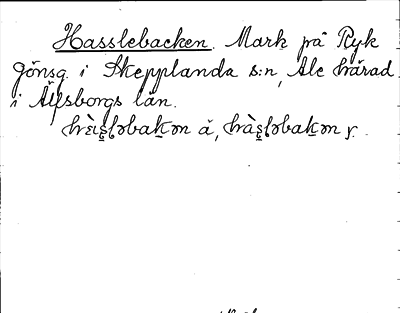 Hasslebacken. Mark på Ryk
Jönsg. i Skepplanda s:n, Ale härad
i Älfsborgs län.
ă, y.